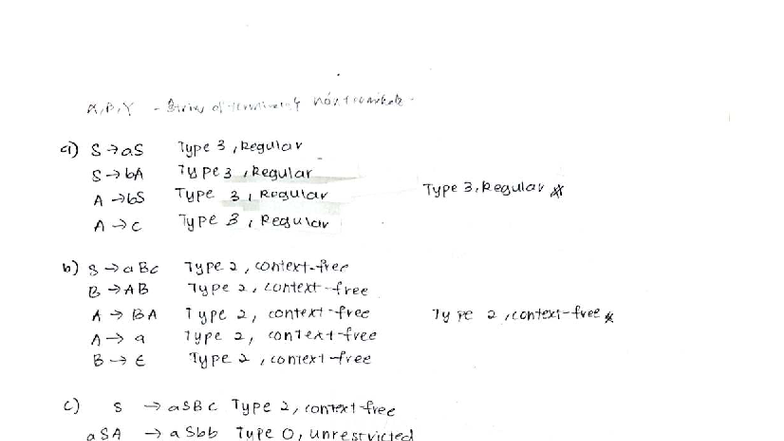 α, β, γ - Strings of terminals & nonterminals.
a) S → aS Type 3, Regular
S → bA Type 3, Regular
A → bS Type 3, Regular Type 3, Regular *
A → c Type 3, Regular
b) S → aBc Type 2, context-free
B → AB Type 2, context-free
A → BA Type 2, context-free Type 2, context-free *
A → a Type 2, context-free
B → ε Type 2, context-free
c) S → aSBc Type 2, context-free
aSA → aSbb Type 0, unrestricted